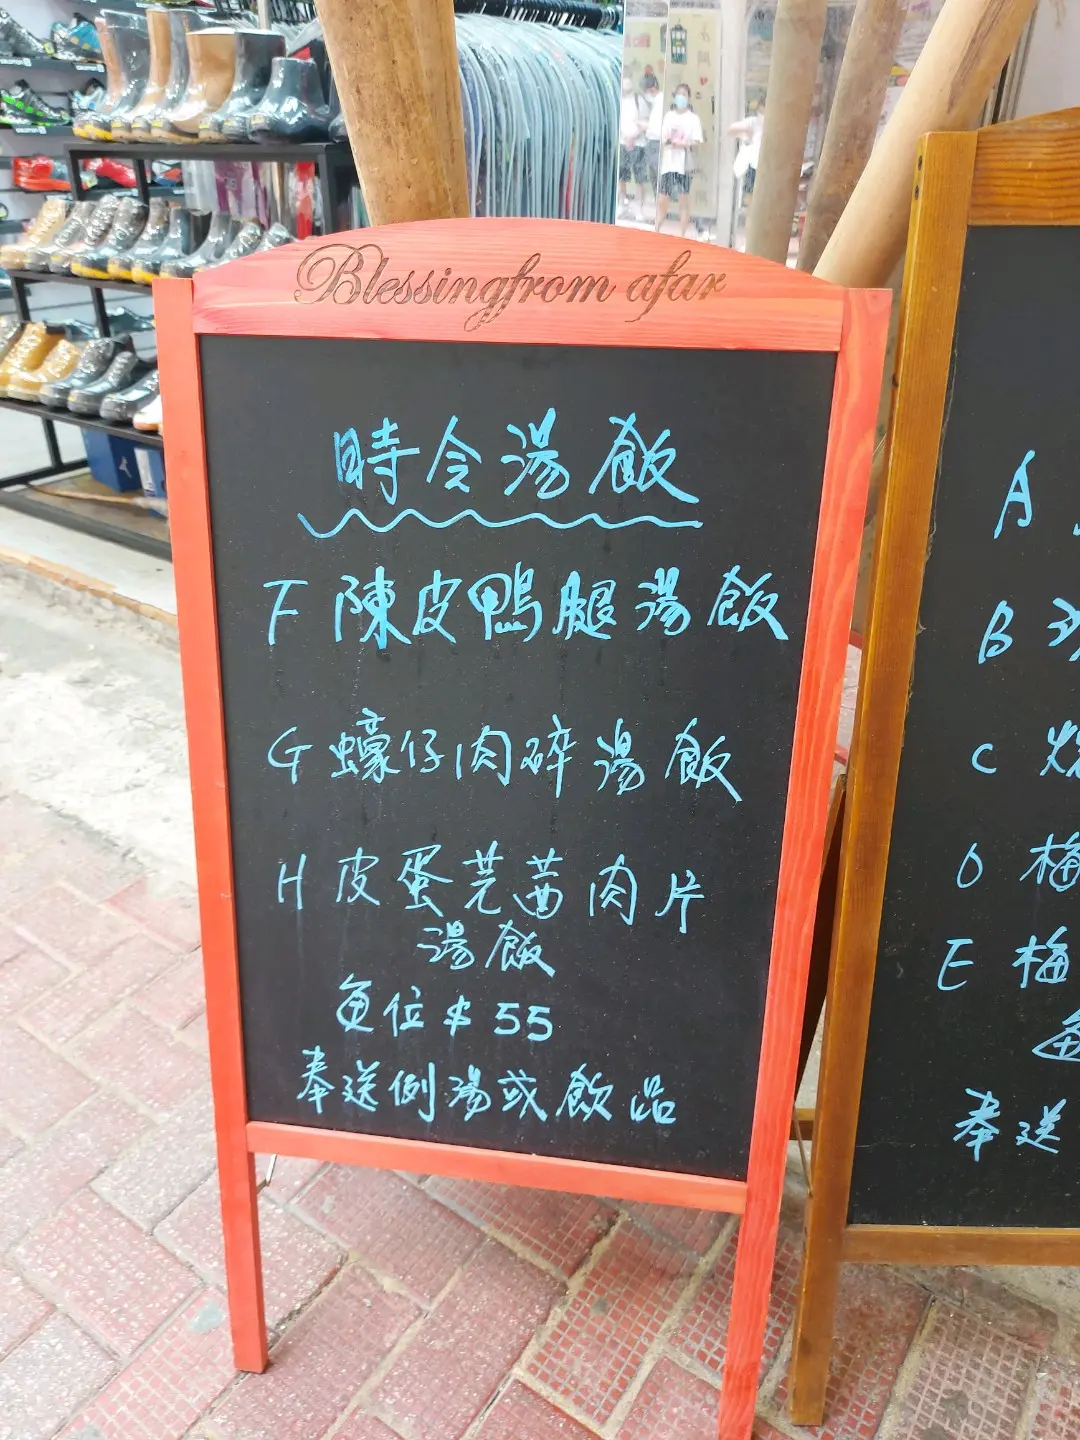 Blessingfrom afar
時令湯飯
F 陳皮鴨腿湯飯
G 蠔仔肉碎湯飯
H 皮蛋芫茜肉片
湯飯
每位 $55
奉送例湯或飲品
A
B
C
D 梅
E 梅
奉送